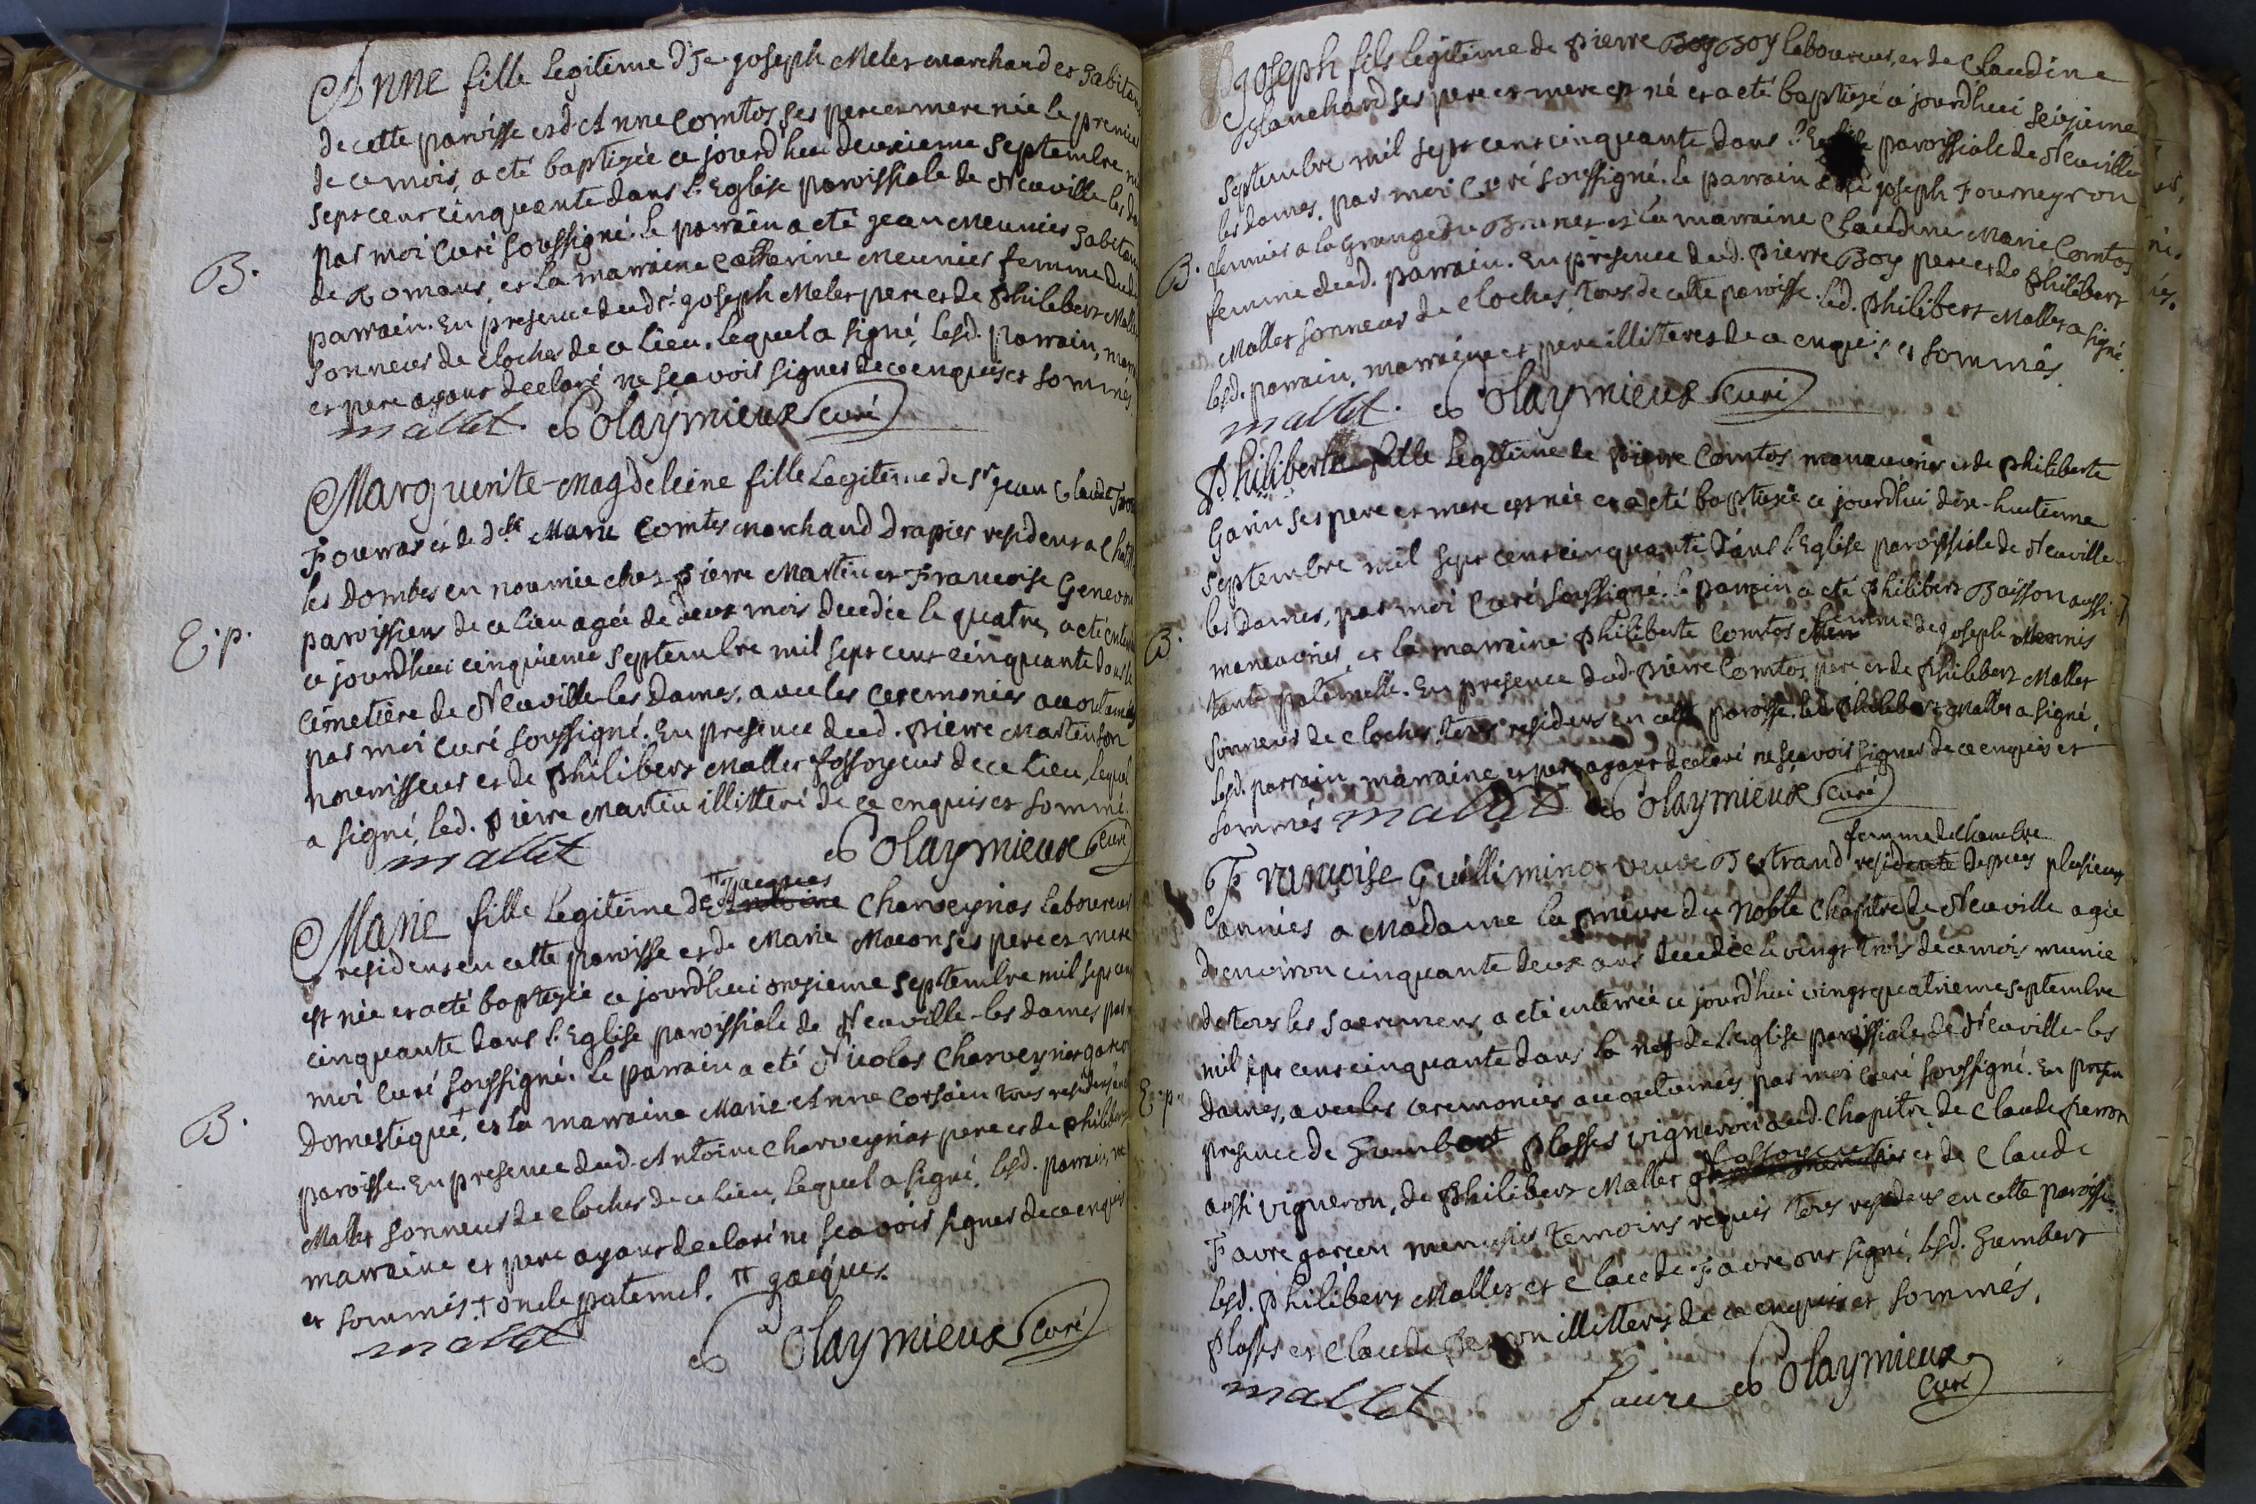 Anne fille legitime d'Je joseph Melet marchand et habitant
de cette paroisse et d'Anne Comtos ses pere et mere née le premier
de ce mois, a eté baptisée ce jourd'hui deuxieme septembre mil
sept cent cinquante dans l'Eglise paroissiale de Neuville les da
par moi Curé soussigné. le parrain a eté jean Meunier habitant
B.
de Romans, et la marraine Catherine Meunier femme dud.
parrain. En presence dud. sr. joseph Melet pere et de philibert Mallet
sonneur de cloches de ce lieu, lequel a signé, lesd. parrain, marr
et pere ayant declaré ne sçavoir signer de ce enquis et sommés.
mallet Polaymieux Curé
Marguerite-Magdeleine fille Legitime de sr. jean Claude
Fourras et de dlle Marie Comtes marchand Drapier resident a Chatill
les Dombes en nourrice chez pierre Martin et Francoise Genevou
paroissiens de ce lieu agée de deux mois decedée le quatre, a eté enterrée
E.p.
ce jourd'hui cinquieme septembre mil sept cent cinquante dans le
cimetiere de Neuville-les Dames, avec les ceremonies accoutumées
par moi curé soussigné. En presence dud. pierre Martin son
nourrisseur et de philibert Mallet fossoyeur de ce lieu, lequel
a signé, led. pierre Martin illitteré de ce enquis et sommé.
mallet Polaymieux Curé
π jacques
Marie fille legitime de Antoine Charveyriat laboureur
resident en cette paroisse et de Marie Macon ses pere et mere
est née et a eté baptisée ce jourd'hui onzieme septembre mil sept cent
cinquante dans l'Eglise paroissiale de Neuville-les dames, par
moi Curé soussigné. Le parrain a eté Nicolas Charveyriat garçon
B.
Domestique, + et la marraine Marie Anne Corsain tous residens en
paroisse. En presence dud. Antoine Charveyriat pere et de philibert
Mallet sonneur de cloches de ce lieu, lequel a signé, lesd. parrain,
marraine et pere ayant declaré ne sçavoir signer de ce enquis
et sommés. + oncle paternel. π jacques.
mallet
Polaymieux Curé
Joseph fils legitime de pierre Boy laboureur, et de Claudine
Blanchard ses pere et mere est né et a eté baptisé ce jourd'hui seizieme
septembre mil sept cent cinquante dans l'Eglise paroissiale de Neuville
les dames, par moi Curé soussigné. le parrain a eté joseph Fourneyron
B.
fermier a la Grange du Brunet et la marraine Claudine Marie Comtos
femme dud. parrain. En presence dud. pierre Boy pere et de philibert
Mallet sonneur de cloches, tous de cette paroisse. led. philibert Mallet a signé,
lesd. parrain, marraine et pere illitteres de ce enquis et sommés.
mallet. Polaymieux Curé
Philiberte fille legitime de pierre Comtos manouvrier et de philiberte
Garin ses pere et mere est née et a eté baptisée ce jourd'hui dix-huitieme
septembre mil sept cent cinquante dans l'Eglise paroissiale de Neuville
les dames, par moi Curé soussigné. le parrain a eté philibert Buisson aussi
B.
manouvrier, et la marraine philiberte Comtos femme de joseph
tante paternelle. En presence dud. pierre Comtos pere et de philibert Mallet
sonneur de cloches, tous residens en cette paroisse. led. philibert Mallet a signé,
lesd. parrain, marraine et pere ayant declaré ne sçavoir signer de ce enquis et
sommés mallet Polaymieux Curé
femme de chambre
Françoise Guilliminot veuve Bertrand residente depuis plusieurs
années a Madame la prieure du Noble Chapitre de Neuville agée
d'environ cinquante deux ans decedée le vingt trois de ce mois munie
de tous les sacremens, a eté enterrée ce jourd'hui vingt quatrieme septembre
mil sept cent cinquante dans la nef de l'eglise paroissiale de Neuville-les
E.p.
dames, avec les ceremonies accoutumées par moi Curé soussigné. En presen
presence de Humbert plasses vigneron aud. Chapitre de Claude perron
fossoyeur
aussi vigneron, de philibert Mallet et de Claude
Favre garçon menusier temoins requis tous residens en cette paroisse.
lesd. philibert Mallet et Claude Favre ont signé, lesd. humbert
plasses et Claude perron illitterés de ce enquis et sommés.
mallet faure Polaymieux
Curé